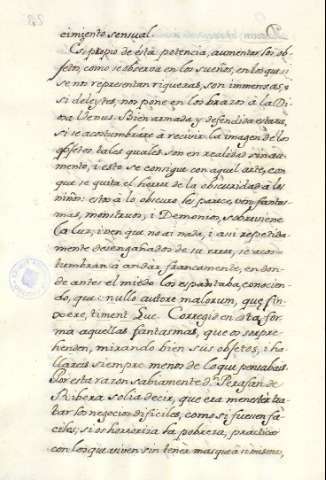 cimiento sensual.
Es propio de esta potencia, aumentar los ob-
jetos, como se observa en los sueños, en los que si
se nos representan riquezas, son immensas; y
si deleytes, nos pone en los brazos à la Di-
va Venus. Bien armada y defendida estará,
si se acostumbrare à recivir la imagen de los
objetos tales quales son en realidad
mento, i esto se consigue con aquel arte, con
que se quita el horror de la obscuridad à los
niños: estos à lo obscuro les parece, ven fantas-
mas, monstruos, i Demonios, sobreviene
la luz, i ven que no ai nada, i assi repetida-
mente desengañados de su error, se acos-
tumbran à andar francamente, en don-
de antes el miedo los espantaba, conocien-
do, que: nullo autore malorum, que fin-
xere, timent. Que Corregid en esta for-
ma aquellas fantasmas, que os sorpre-
henden, mirando bien sus objetos, i ha-
llareis siempre menos de lo que pensabais.
Por esta razon sabiamente Dn. Perafan de
Ribera solia decir, que era menester tra-
tar los negocios dificiles, como si fuesen fa-
ciles; si os horroriza la pobreza, practico
con los que viven sin tener mas que à si mismos,